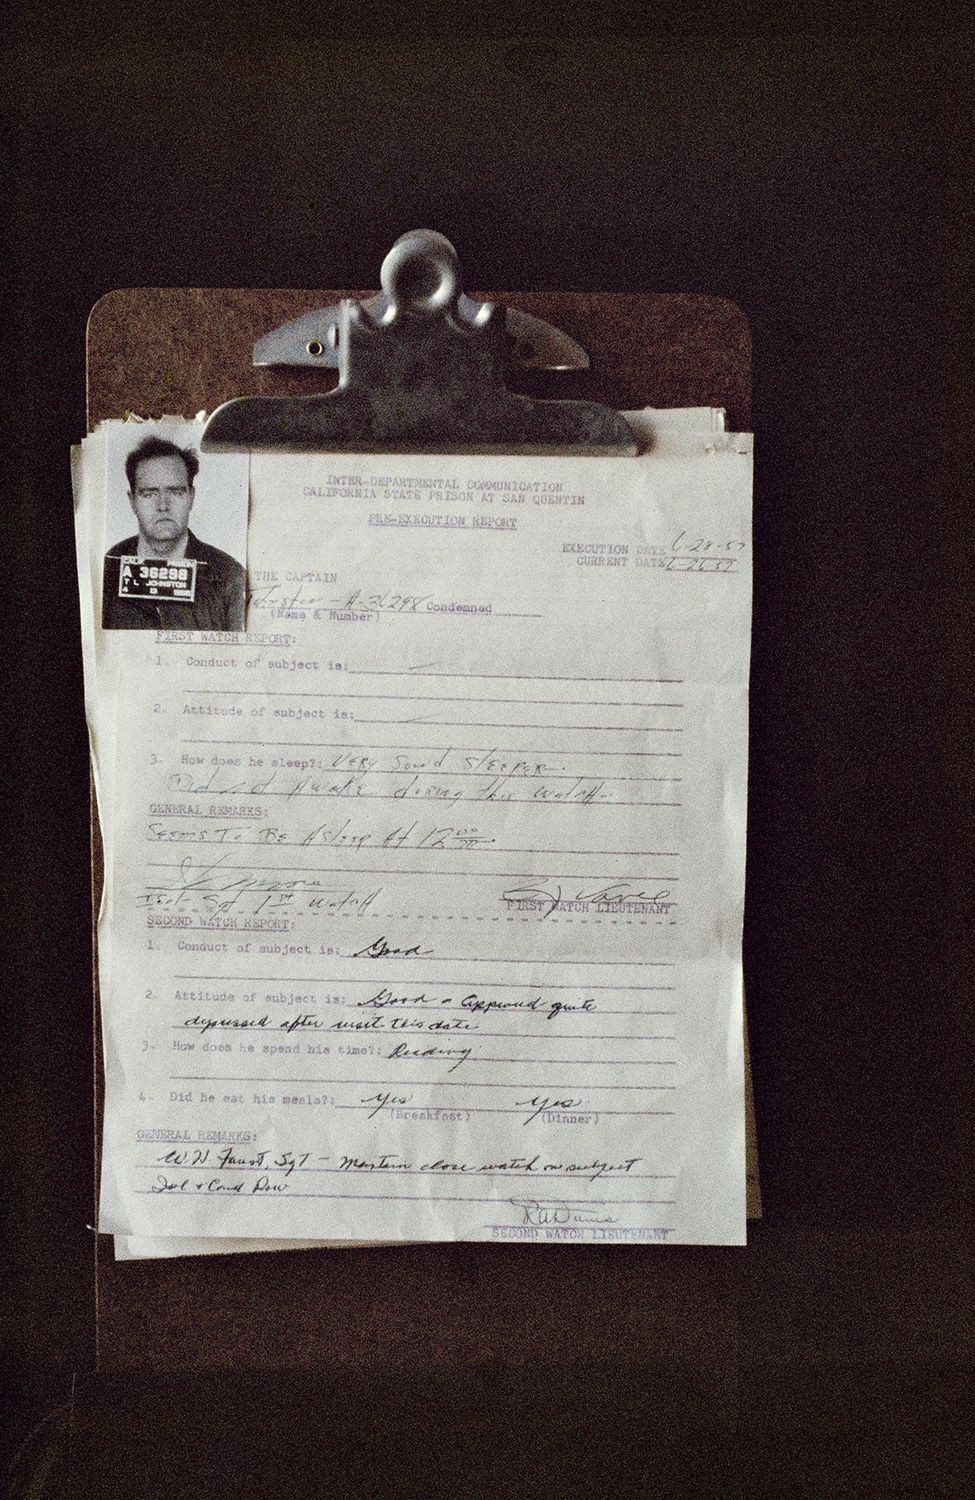 INTER-DEPARTMENTAL COMMUNICATION
CALIFORNIA STATE PRISON AT SAN QUENTIN
PRE-EXECUTION REPORT
EXECUTION DATE 6-28-57
CURRENT DATE 6-26-57
CALIF PRISON
A 36298
T L JOHNSTON
4 13
THE CAPTAIN
Johnston - A-36298 Condemned
(Name & Number)
FIRST WATCH REPORT:
1. Conduct of subject is: —
2. Attitude of subject is: —
3. How does he sleep?: Very Sound Sleeper.
Did not Awake during this watch.
GENERAL REMARKS:
Seems To Be Asleep At 12
Sgt 1st Watch
FIRST WATCH LIEUTENANT
SECOND WATCH REPORT:
1. Conduct of subject is: Good
2. Attitude of subject is: Good - Appeared quite
depressed after visit this date
3. How does he spend his time?: Reading
4. Did he eat his meals?: Yes Yes
(Breakfast) (Dinner)
GENERAL REMARKS:
W.H. Faust, Sgt - Maintain close watch on subject
Isol & Cond Row
SECOND WATCH LIEUTENANT